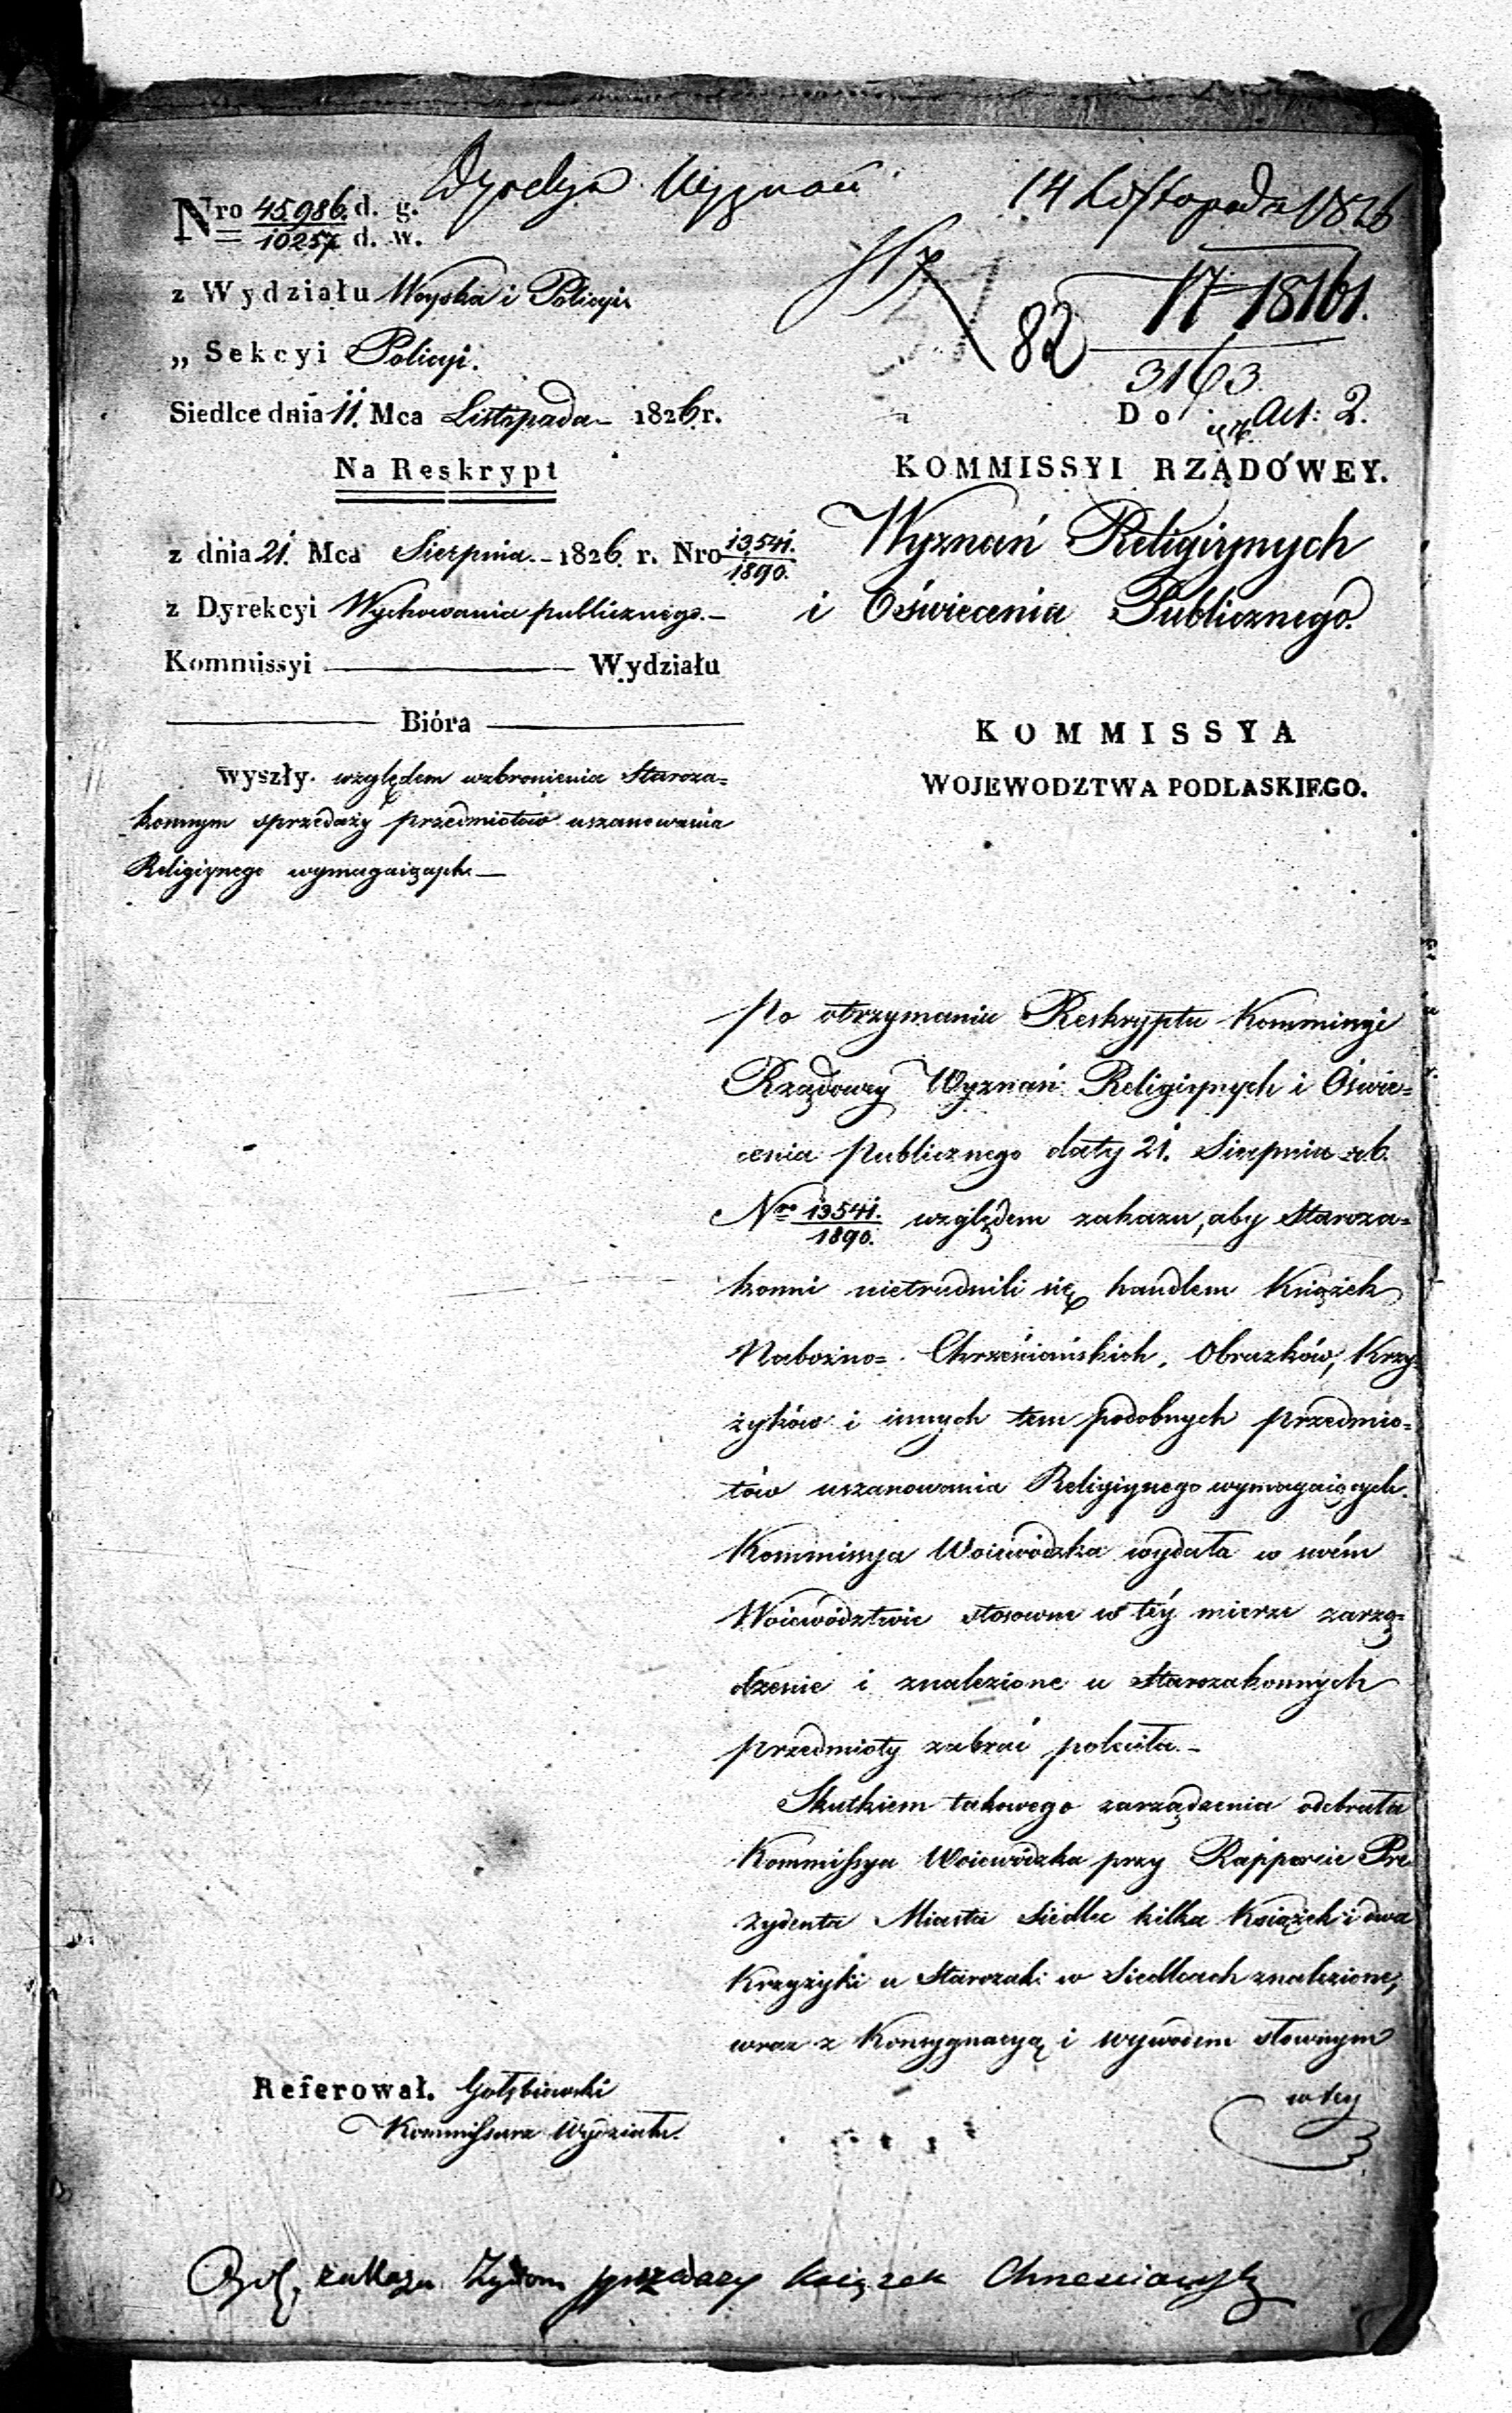 Dyrekcya Wyznań
14 Listopada 1826
Nro 45986. d. g.
10257 d. w.
z Wydziału Woyska i Policyi
„ Sekcyi Policyi.
Siedlce dnia 11. Mca Listopada 1826 r.
Na Reskrypt
z dnia 21. Mca Sierpnia. - 1826. r. Nro 13541.
1890.
z Dyrekcyi Wychowania publicznego. -
Kommissyi ——— Wydziału
——— Bióra ———
wyszły. względem wzbronienia Staroza=
konnym sprzedaży przedmiotów uszanowania
Religiynego wymagaiących. —
82
17 18161.
3163
Act: 2.
Do
KOMMISSYI RZĄDOWEY.
Wyznań Religiynych
i Oświecenia Publicznego.
KOMMISSYA
WOJEWODZTWA PODLASKIEGO.
Po otrzymaniu Reskryptu Kommissyi
Rządowey Wyznań Religiynych i Oświe=
cenia Publicznego daty 21. Sierpnia r.b.
Nro 13541.
1890. względem zakazu, aby Staroza=
konni nietrudnili się handlem Książek
Nabożno=Chrześciańskich, Obrazków, Krzy=
żyków i innych tem podobnych przedmio=
tów uszanowania Religiynego wymagaiących.
Kommissya Woiewódzka wydała w swém
Woiewództwie stosowne w téy mierze zarzą=
dzenie i znalezione u Starozakonnych
przedmioty zabrać poleciła. -
Skutkiem takowego zarządzenia odebrała
Kommissya Woiewódzka przy Rapporcie Pre
zydenta Miasta Siedlec kilka Książek i dwa
Krzyżyki u Starozak: w Siedlcach znalezione,
wraz z Konsygnacyą i wywodem słownym
w tey
Referował. Gołębiowski
Kommissarz Wydziału.
zakazu Żydom sprzedaży książek Chrześciańsk